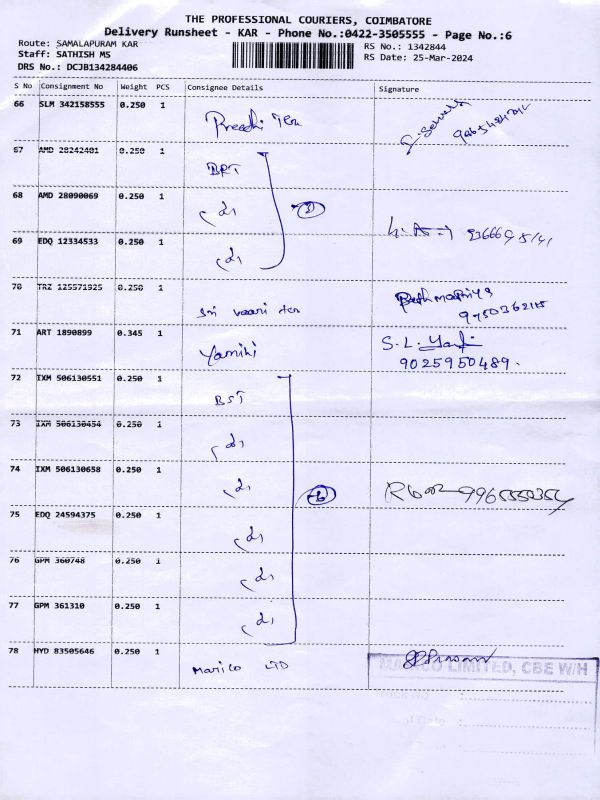 THE PROFESSIONAL COURIERS, COIMBATORE
Delivery Runsheet - KAR - Phone No.:0422-3505555 - Page No.:6
Route: SAMALAPURAM KAR
Staff: SATHISH MS
DRS No.: DCJB134284406
RS No.: 1342844
RS Date: 25-Mar-2024
S No Consignment No Weight PCS Consignee Details Signature
66 SLM 342158555 0.250 1 Preethi Tex
67 AMD 28242401 0.250 1 BRT
68 AMD 28090069 0.250 1
69 EDQ 12334533 0.250 1
70 TRZ 125571925 0.250 1 Sri vaari tex
71 ART 1890899 0.345 1 Yamini S. L.
9025950489.
72 IXM 506130551 0.250 1 BST
73 IXM 506130454 0.250 1
74 IXM 506130658 0.250 1
75 EDQ 24594375 0.250 1
76 GPM 360748 0.250 1
77 GPM 361310 0.250 1
78 HYD 83505646 0.250 1 Marico LTD
MARICO LIMITED, CBE W/H